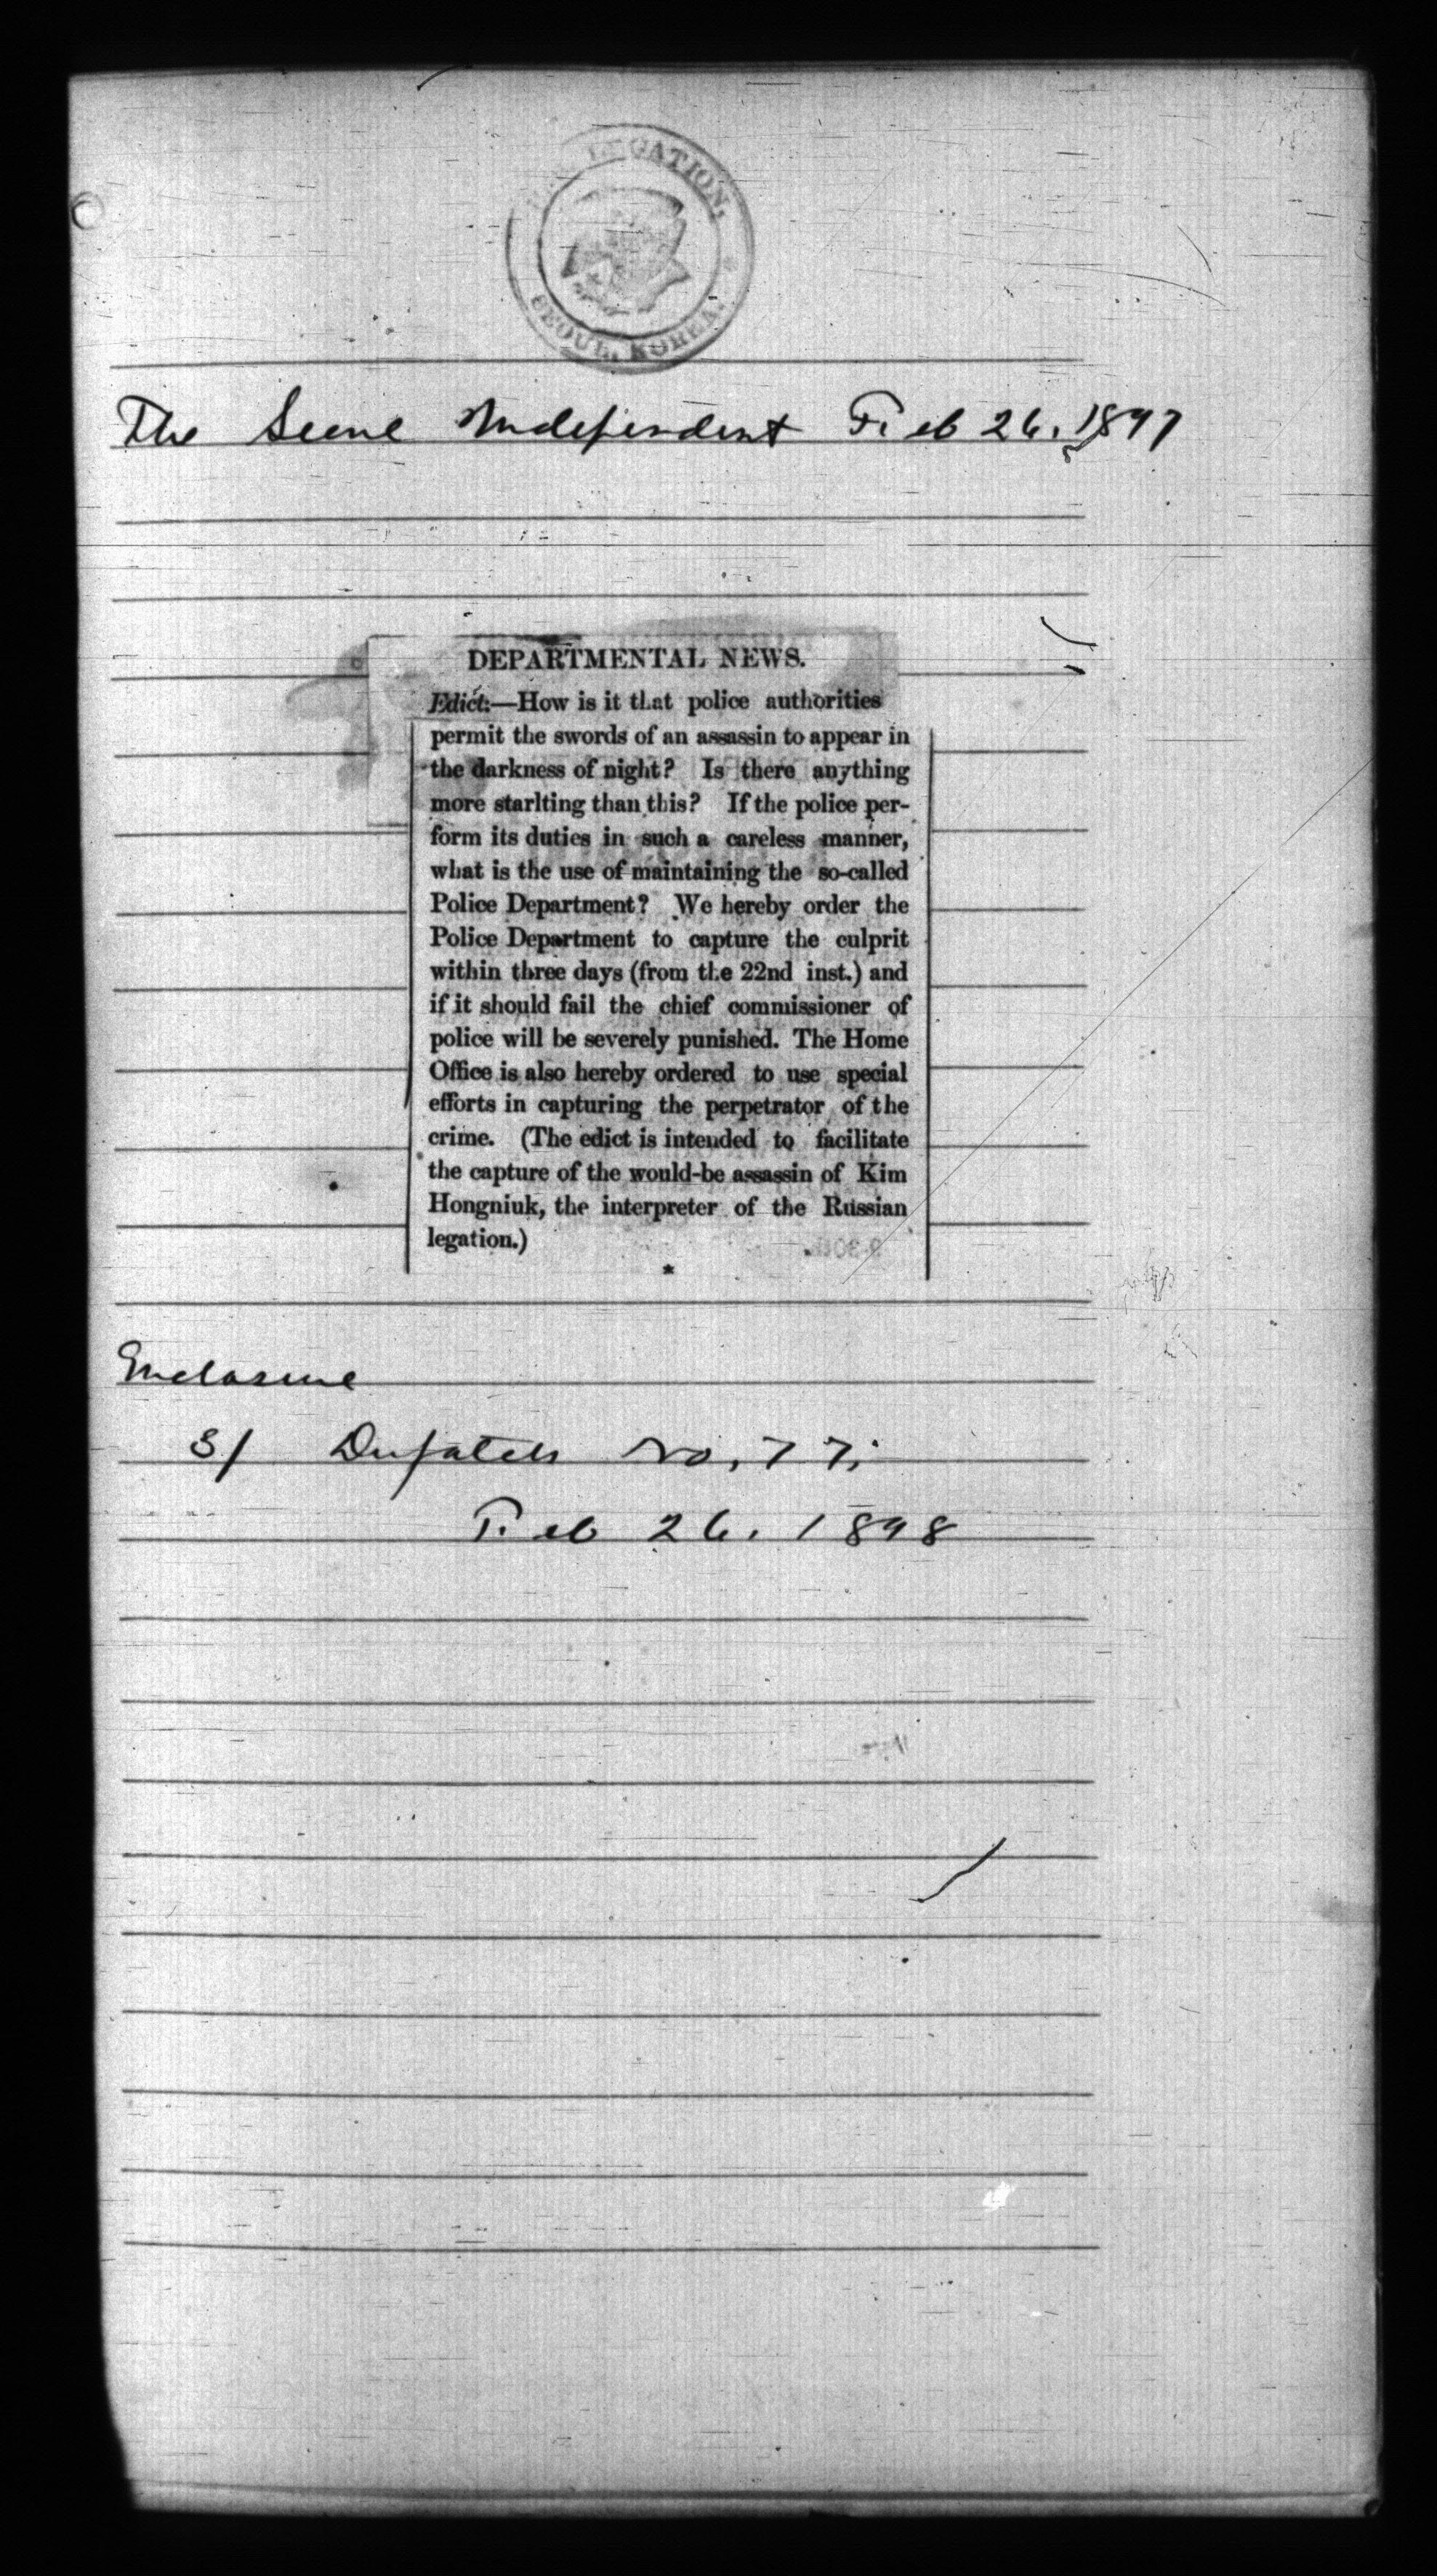 LEGATION,
SEOUL, KOREA.
The Seoul Independent Feb 26, 1897
DEPARTMENTAL NEWS.
Edict:—How is it that police authorities
permit the swords of an assassin to appear in
the darkness of night? Is there anything
more starlting than this? If the police per-
form its duties in such a careless manner,
what is the use of maintaining the so-called
Police Department? We hereby order the
Police Department to capture the culprit
within three days (from the 22nd inst.) and
if it should fail the chief commissioner of
police will be severely punished. The Home
Office is also hereby ordered to use special
efforts in capturing the perpetrator of the
crime. (The edict is intended to facilitate
the capture of the would-be assassin of Kim
Hongniuk, the interpreter of the Russian
legation.)
*
Enclosure
3/ Dispatch No, 77,
Feb 26, 1898